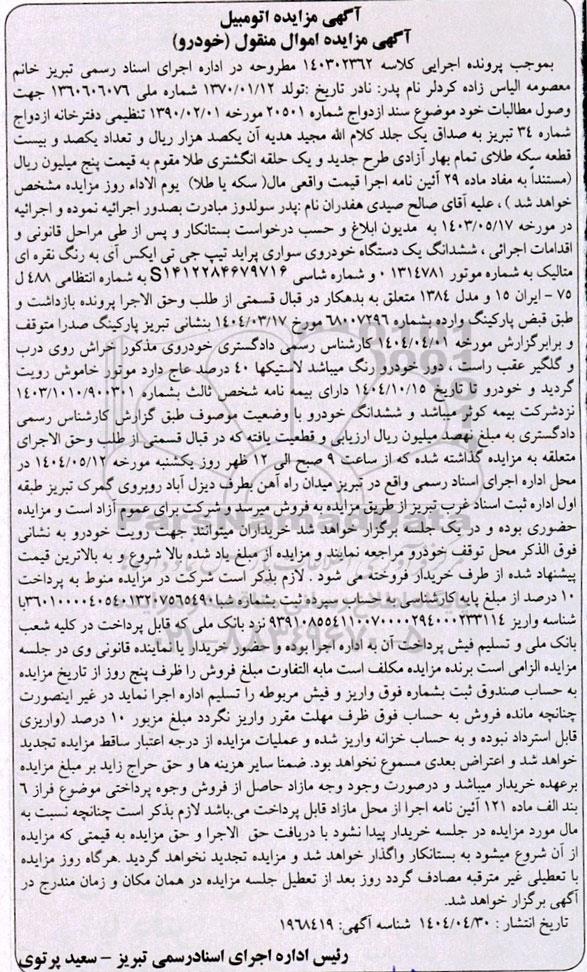 آگهی مزایده اتومبیل
آگهی مزایده اموال منقول (خودرو)
بموجب پرونده اجرایی کلاسه ۱۴۰۳۰۲۳۶۲ مطروحه در اداره اجرای اسناد رسمی تبریز خانم
معصومه الیاس زاده کردلر نام پدر: نادر تاریخ :تولد ۱۳۷۰/۰۱/۱۲ شماره ملی ۱۳۶۰۶۰۶۰۷۶ جهت
وصول مطالبات خود موضوع سند ازدواج شماره ۲۰۵۰۱ مورخه ۱۳۹۰/۰۲/۰۱ تنظیمی دفترخانه ازدواج
شماره ۳۴ تبریز به صداق یک جلد کلام الله مجید هدیه آن یکصد هزار ریال و تعداد یکصد و بیست
قطعه سکه طلای تمام بهار آزادی طرح جدید و یک حلقه انگشتری طلا مقوم به قیمت پنج میلیون ریال
(مستنداً به مفاد ماده ۲۹ آئین نامه اجرا قیمت واقعی مال( سکه یا طلا) یوم الاداء روز مزایده مشخص
خواهد شد ) ، علیه آقای صالح صیدی هفدران نام :پدر سولدوز مبادرت بصدور اجرائیه نموده و اجرائیه
در مورخه ۱۴۰۳/۰۵/۱۷ به مدیون ابلاغ و حسب درخواست بستانکار و پس از طی مراحل قانونی و
اقدامات اجرائی ، ششدانگ یک دستگاه خودروی سواری پراید تیپ جی تی ایکس آی به رنگ نقره ای
متالیک به شماره موتور ۰۱۳۱۴۷۸۱ و شماره شاسی S۱۴۱۲۲۸۴۶۷۹۷۱۶ به شماره انتظامی ۴۸۸ ل
۷۵ - ایران ۱۵ و مدل ۱۳۸۴ متعلق به بدهکار در قبال قسمتی از طلب وحق الاجرا پرونده بازداشت و
طبق قبض پارکینگ وارده بشماره ۶۸۰۰۷۲۹۶ مورخ ۱۴۰۴/۰۳/۱۷ بنشانی تبریز پارکینگ صدرا متوقف
و برابرگزارش مورخه ۱۴۰۴/۰۴/۰۱ کارشناس رسمی دادگستری خودروی مذکور خراش روی درب
و گلگیر عقب راست ، دور خودرو رنگ میباشد لاستیکها ۴۰ درصد عاج دارد موتور خاموش رویت
گردید و خودرو تا تاریخ ۱۴۰۴/۱۰/۱۵ دارای بیمه نامه شخص ثالث بشماره ۱۴۰۳/۱۰۱۰/۹۰۰۳۰۱
نزدشرکت بیمه کوثر میباشد و ششدانگ خودرو با وضعیت موصوف طبق گزارش کارشناس رسمی
دادگستری به مبلغ نهصد میلیون ریال ارزیابی و قطعیت یافته که در قبال قسمتی از طلب وحق الاجرای
متعلقه به مزایده گذاشته شده که از ساعت ۹ صبح الی ۱۲ ظهر روز یکشنبه مورخه ۱۴۰۴/۰۵/۱۲ در
محل اداره اجرای اسناد رسمی واقع در تبریز میدان راه آهن بطرف دیزل آباد روبروی گمرک تبریز طبقه
اول اداره ثبت اسناد غرب تبریز از طریق مزایده به فروش میرسد و شرکت برای عموم آزاد است و مزایده
حضوری بوده و در یک جلسه برگزار خواهد شد خریداران میتوانند جهت رویت خودرو به نشانی
فوق الذکر محل توقف خودرو مراجعه نمایند و مزایده از مبلغ یاد شده بالا شروع و به بالاترین قیمت
پیشنهاد شده از طرف خریدار فروخته می شود . لازم بذکر است شرکت در مزایده منوط به پرداخت
۱۰ درصد از مبلغ پایه کارشناسی به حساب سپرده ثبت بشماره شبا ۳۶۰۱۰۰۰۰۴۰۵۴۰۱۳۲۰۷۵۶۵۴۹۰با
شناسه واریز ۹۳۹۱۰۸۵۵۴۱۱۰۰۷۰۰۰۰۲۹۴۰۰۰۲۳۳۱۱۴ نزد بانک ملی که قابل پرداخت در کلیه شعب
بانک ملی و تسلیم فیش پرداخت آن به اداره اجرا بوده و حضور خریدار یا نماینده قانونی وی در جلسه
مزایده الزامی است برنده مزایده مکلف است مابه التفاوت مبلغ فروش را ظرف پنج روز از تاریخ مزایده
به حساب صندوق ثبت بشماره فوق واریز و فیش مربوطه را تسلیم اداره اجرا نماید در غیر اینصورت
چنانچه مانده فروش به حساب فوق ظرف مهلت مقرر واریز نگردد مبلغ مزبور ۱۰ درصد (واریزی
قابل استرداد نبوده و به حساب خزانه واریز شده و عملیات مزایده از درجه اعتبار ساقط مزایده تجدید
خواهد شد و اعتراض بعدی مسموع نخواهد بود. ضمنا سایر هزینه ها و حق حراج زاید بر مبلغ مزایده
برعهده خریدار میباشد و درصورت وجود وجه مازاد حاصل از فروش وجوه پرداختی موضوع فراز ۶
بند الف ماده ۱۲۱ آئین نامه اجرا از محل مازاد قابل پرداخت می.باشد لازم بذکر است چنانچه نسبت به
مال مورد مزایده در جلسه خریدار پیدا نشود با دریافت حق الاجرا و حق مزایده به قیمتی که مزایده
از آن شروع میشود به بستانکار واگذار خواهد شد و مزایده تجدید نخواهد گردید .هرگاه روز مزایده
با تعطیلی غیر مترقبه مصادف گردد روز بعد از تعطیل جلسه مزایده در همان مکان و زمان مندرج در
آگهی برگزار خواهد شد.
تاریخ انتشار : ۱۴۰۴/۰۴/۳۰ شناسه آگهی: ۱۹۶۸۴۱۹
رئیس اداره اجرای اسنادرسمی تبریز - سعید پرتوی
ParsNamadData
۰۲۱-۸۸۳۴۹۶۷۰-۵